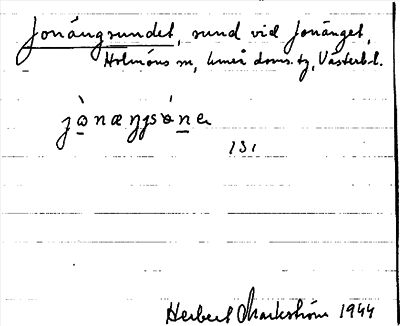 Jonängsundet, sund vid Jonänget,
Holmöns sn, Umeå doms. tg, Västerb. l.
jò̠næŋsó̠nə
131
Herbert Markström 1944